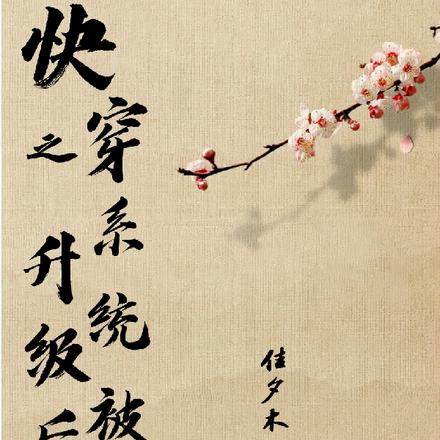 快穿之系统升级后被
佳夕木